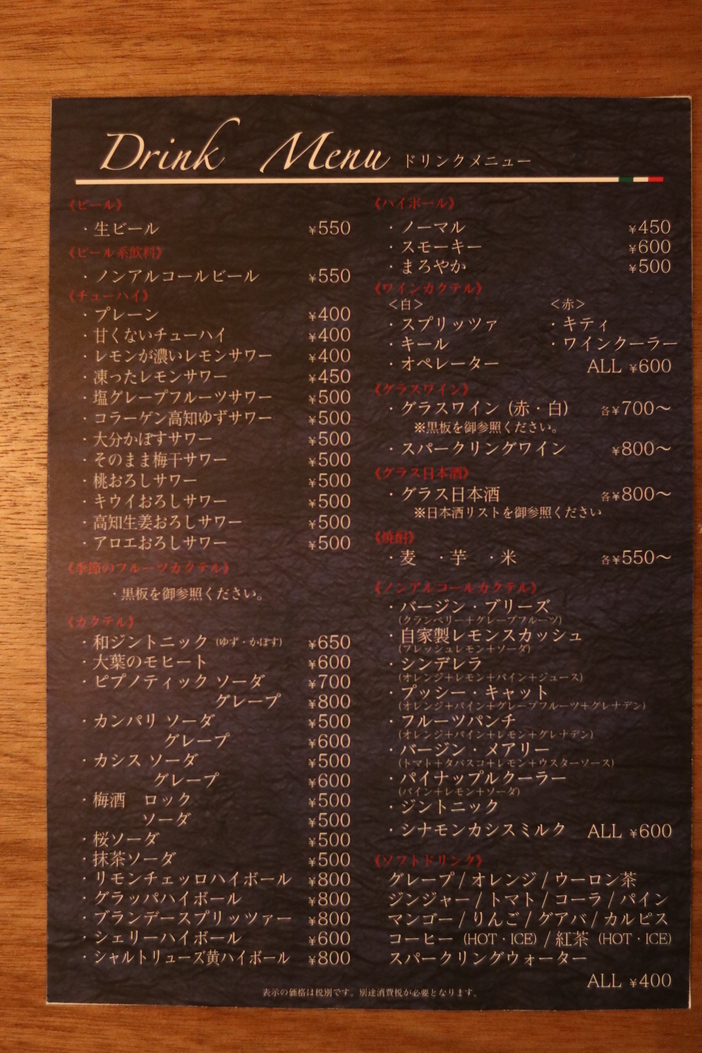 Drink Menu ドリンクメニュー
《ビール》
・生ビール ¥550
《ビール系飲料》
・ノンアルコールビール ¥550
《チューハイ》
・プレーン ¥400
・甘くないチューハイ ¥400
・レモンが濃いレモンサワー ¥400
・凍ったレモンサワー ¥450
・塩グレープフルーツサワー ¥500
・コラーゲン高知ゆずサワー ¥500
・大分かぼすサワー ¥500
・そのまま梅干サワー ¥500
・桃おろしサワー ¥500
・キウイおろしサワー ¥500
・高知生姜おろしサワー ¥500
・アロエおろしサワー ¥500
《季節のフルーツカクテル》
・黒板を御参照ください。
《カクテル》
・和ジントニック (ゆず・かぼす) ¥650
・大葉のモヒート ¥600
・ピプノティック ソーダ ¥700
グレープ ¥800
・カンパリ ソーダ ¥500
グレープ ¥600
・カシス ソーダ ¥500
グレープ ¥600
・梅酒 ロック ¥500
ソーダ ¥500
・桜ソーダ ¥500
・抹茶ソーダ ¥500
・リモンチェッロハイボール ¥800
・グラッパハイボール ¥800
・ブランデースプリッツァー ¥800
・シェリーハイボール ¥600
・シャルトリューズ黄ハイボール ¥800
《ハイボール》
・ノーマル ¥450
・スモーキー ¥600
・まろやか ¥500
《ワインカクテル》
＜白＞ ＜赤＞
・スプリッツァ ・キティ
・キール ・ワインクーラー
・オペレーター ALL ¥600
《グラスワイン》
・グラスワイン (赤・白) 各¥700〜
※黒板を御参照ください。
・スパークリングワイン ¥800〜
《グラス日本酒》
・グラス日本酒 各¥800〜
※日本酒リストを御参照ください
《焼酎》
・麦 ・芋 ・米 各¥550〜
《ノンアルコールカクテル》
・バージン・ブリーズ
(クランベリー＋グレープフルーツ)
・自家製レモンスカッシュ
(フレッシュレモン＋ソーダ)
・シンデレラ
(オレンジ＋レモン＋パイン＋ジュース)
・プッシー・キャット
(オレンジ＋パイン＋グレープフルーツ＋グレナデン)
・フルーツパンチ
(オレンジ＋パイン＋レモン＋グレナデン)
・バージン・メアリー
(トマト＋タバスコ＋レモン＋ウスターソース)
・パイナップルクーラー
(パイン＋レモン＋ソーダ)
・ジントニック
・シナモンカシスミルク ALL ¥600
《ソフトドリンク》
グレープ / オレンジ / ウーロン茶
ジンジャー / トマト / コーラ / パイン
マンゴー / りんご / グアバ / カルピス
コーヒー (HOT・ICE) / 紅茶 (HOT・ICE)
スパークリングウォーター
ALL ¥400
表示の価格は税別です。別途消費税が必要となります。